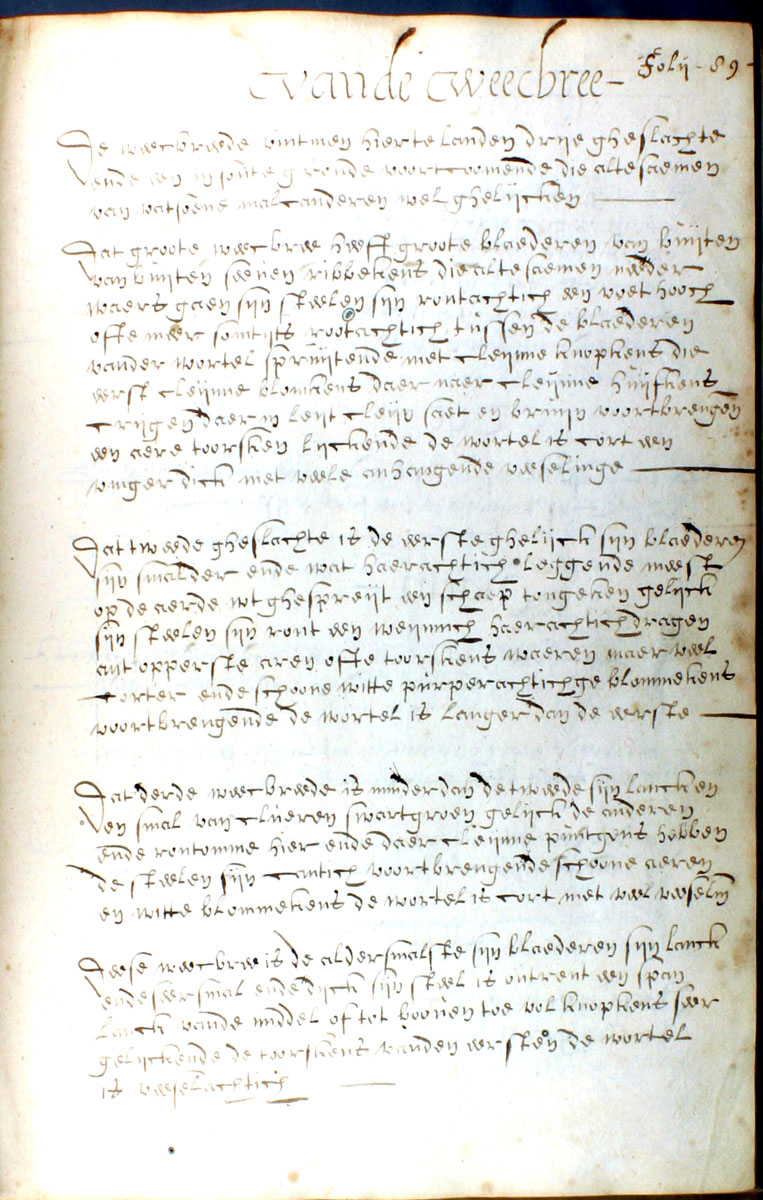 Folii - 89
vande weechbree -
De weecbreede vintmen hier te landen drije gheslachte
ende een in soute gronde voortcoomende die altesaemen
van vatsoene malcanderen wel ghelijcken
Dat groote weecbree heeft groote blaederen van buijten
van buijten seeven ribbekens die altesaemen needer
waers gaen sijn steelen sijn rontachtich een voet hooch
ofte meer somtijts rootachtich tussen de blaederen
vander wortel spruijtende met cleijnne knopkens die
eerst cleijnne blomkens daer naer cleijnne huijskens
crijgen daer in leijt cleijn saet en bruijn voortbrengen
een aere toorsken lijckende de wortel is cort een
vinger dick met veele anhangende veeselinge
Dat tweede gheslachte is de eerste ghelijck sijn blaederen
sijn smalder ende wat haerachtich leggende meest
op de aerde wtghespreijt een schaep tongeken gelijck
sijn steelen sijn ront een weijnnich haerachtich dragen
ant opperste aren ofte toorskens waeren maer veel
corter ende schoone witte purperachtichge blommekens
voortbrengende de wortel is langer dan de eerste
Dat derde weecbreede is minder dan de tweede sijn lanck en
en smal van clueren swartgroen gelijck de anderen
ende rontomme hier ende daer cleijnne puntgens hebben
de steelen sijn cantich voortbrengende schoone aeren
en witte blommekens de wortel is cort met veel veeselin
Deese weecbree is de aldersmalste sijn blaederen sijn lanck
ende seer smal ende dijck sijn steel is ontrent een span
lanck vande middel of tot booven toe vol knopkens seer
gelijckende de toorskens vanden eersten de wortel
is veeselachtich